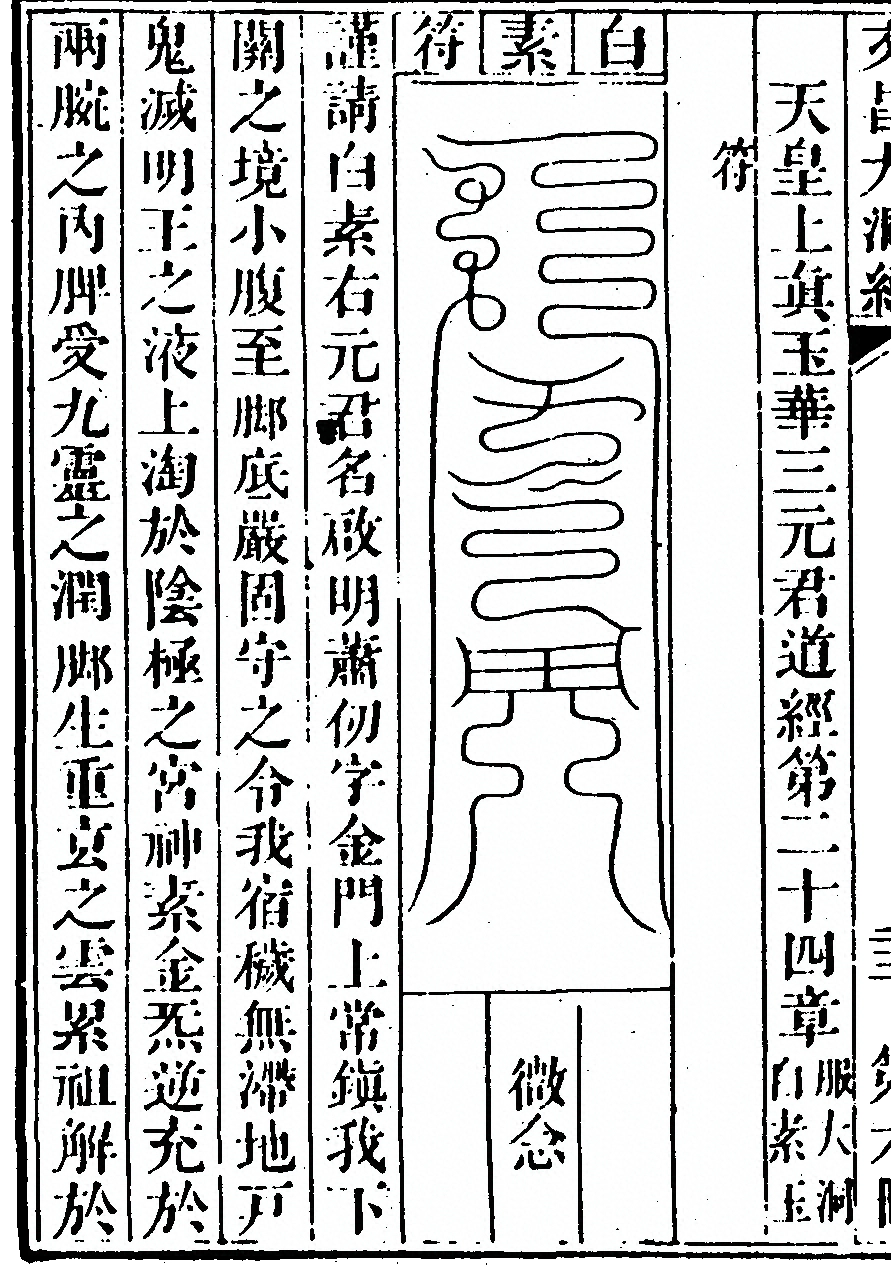 大洞經
三
天皇上眞玉華三元君道經第二十四章
服大洞
白素玉
符
白素符
微念
謹請白素右元君名啟明蕭仞字金門上常鎮我下
關之境小腹至脚底嚴固守之令我宿穢無滯地戸
鬼滅明王之液上淘於陰極之宮神素金炁逆充於
兩腕之內脾受九靈之潤脚生重玄之雲累祖解於